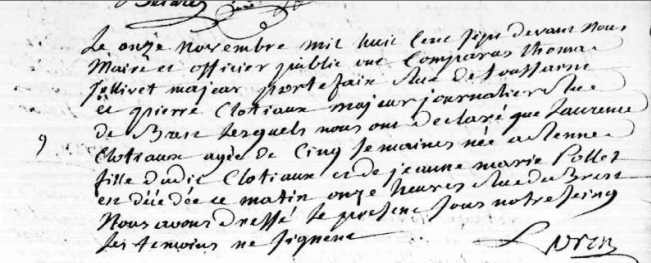 Le onze Novembre mil huit cent sept devant Nous
Maire et officier public ont Comparus thomas
jollivet majeur portefaix Rue de toussaint
et pierre Clotiaux majeur journalier Rue
de Brest Lesquels nous ont déclaré que Laurence
9 Clotiaux agée de Cinq semaines née a Rennes
fille dudit Clotiaux et de jeanne marie Pollet
est décédée ce matin onze heures Rue de Brest
Nous avons dressé le present sous notre seing
les temoins ne signent